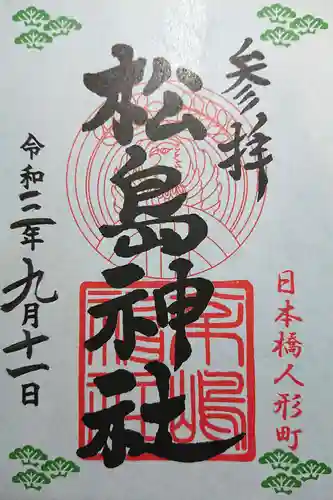 参拝
日本橋人形町
松島神社
令和二年九月十一日